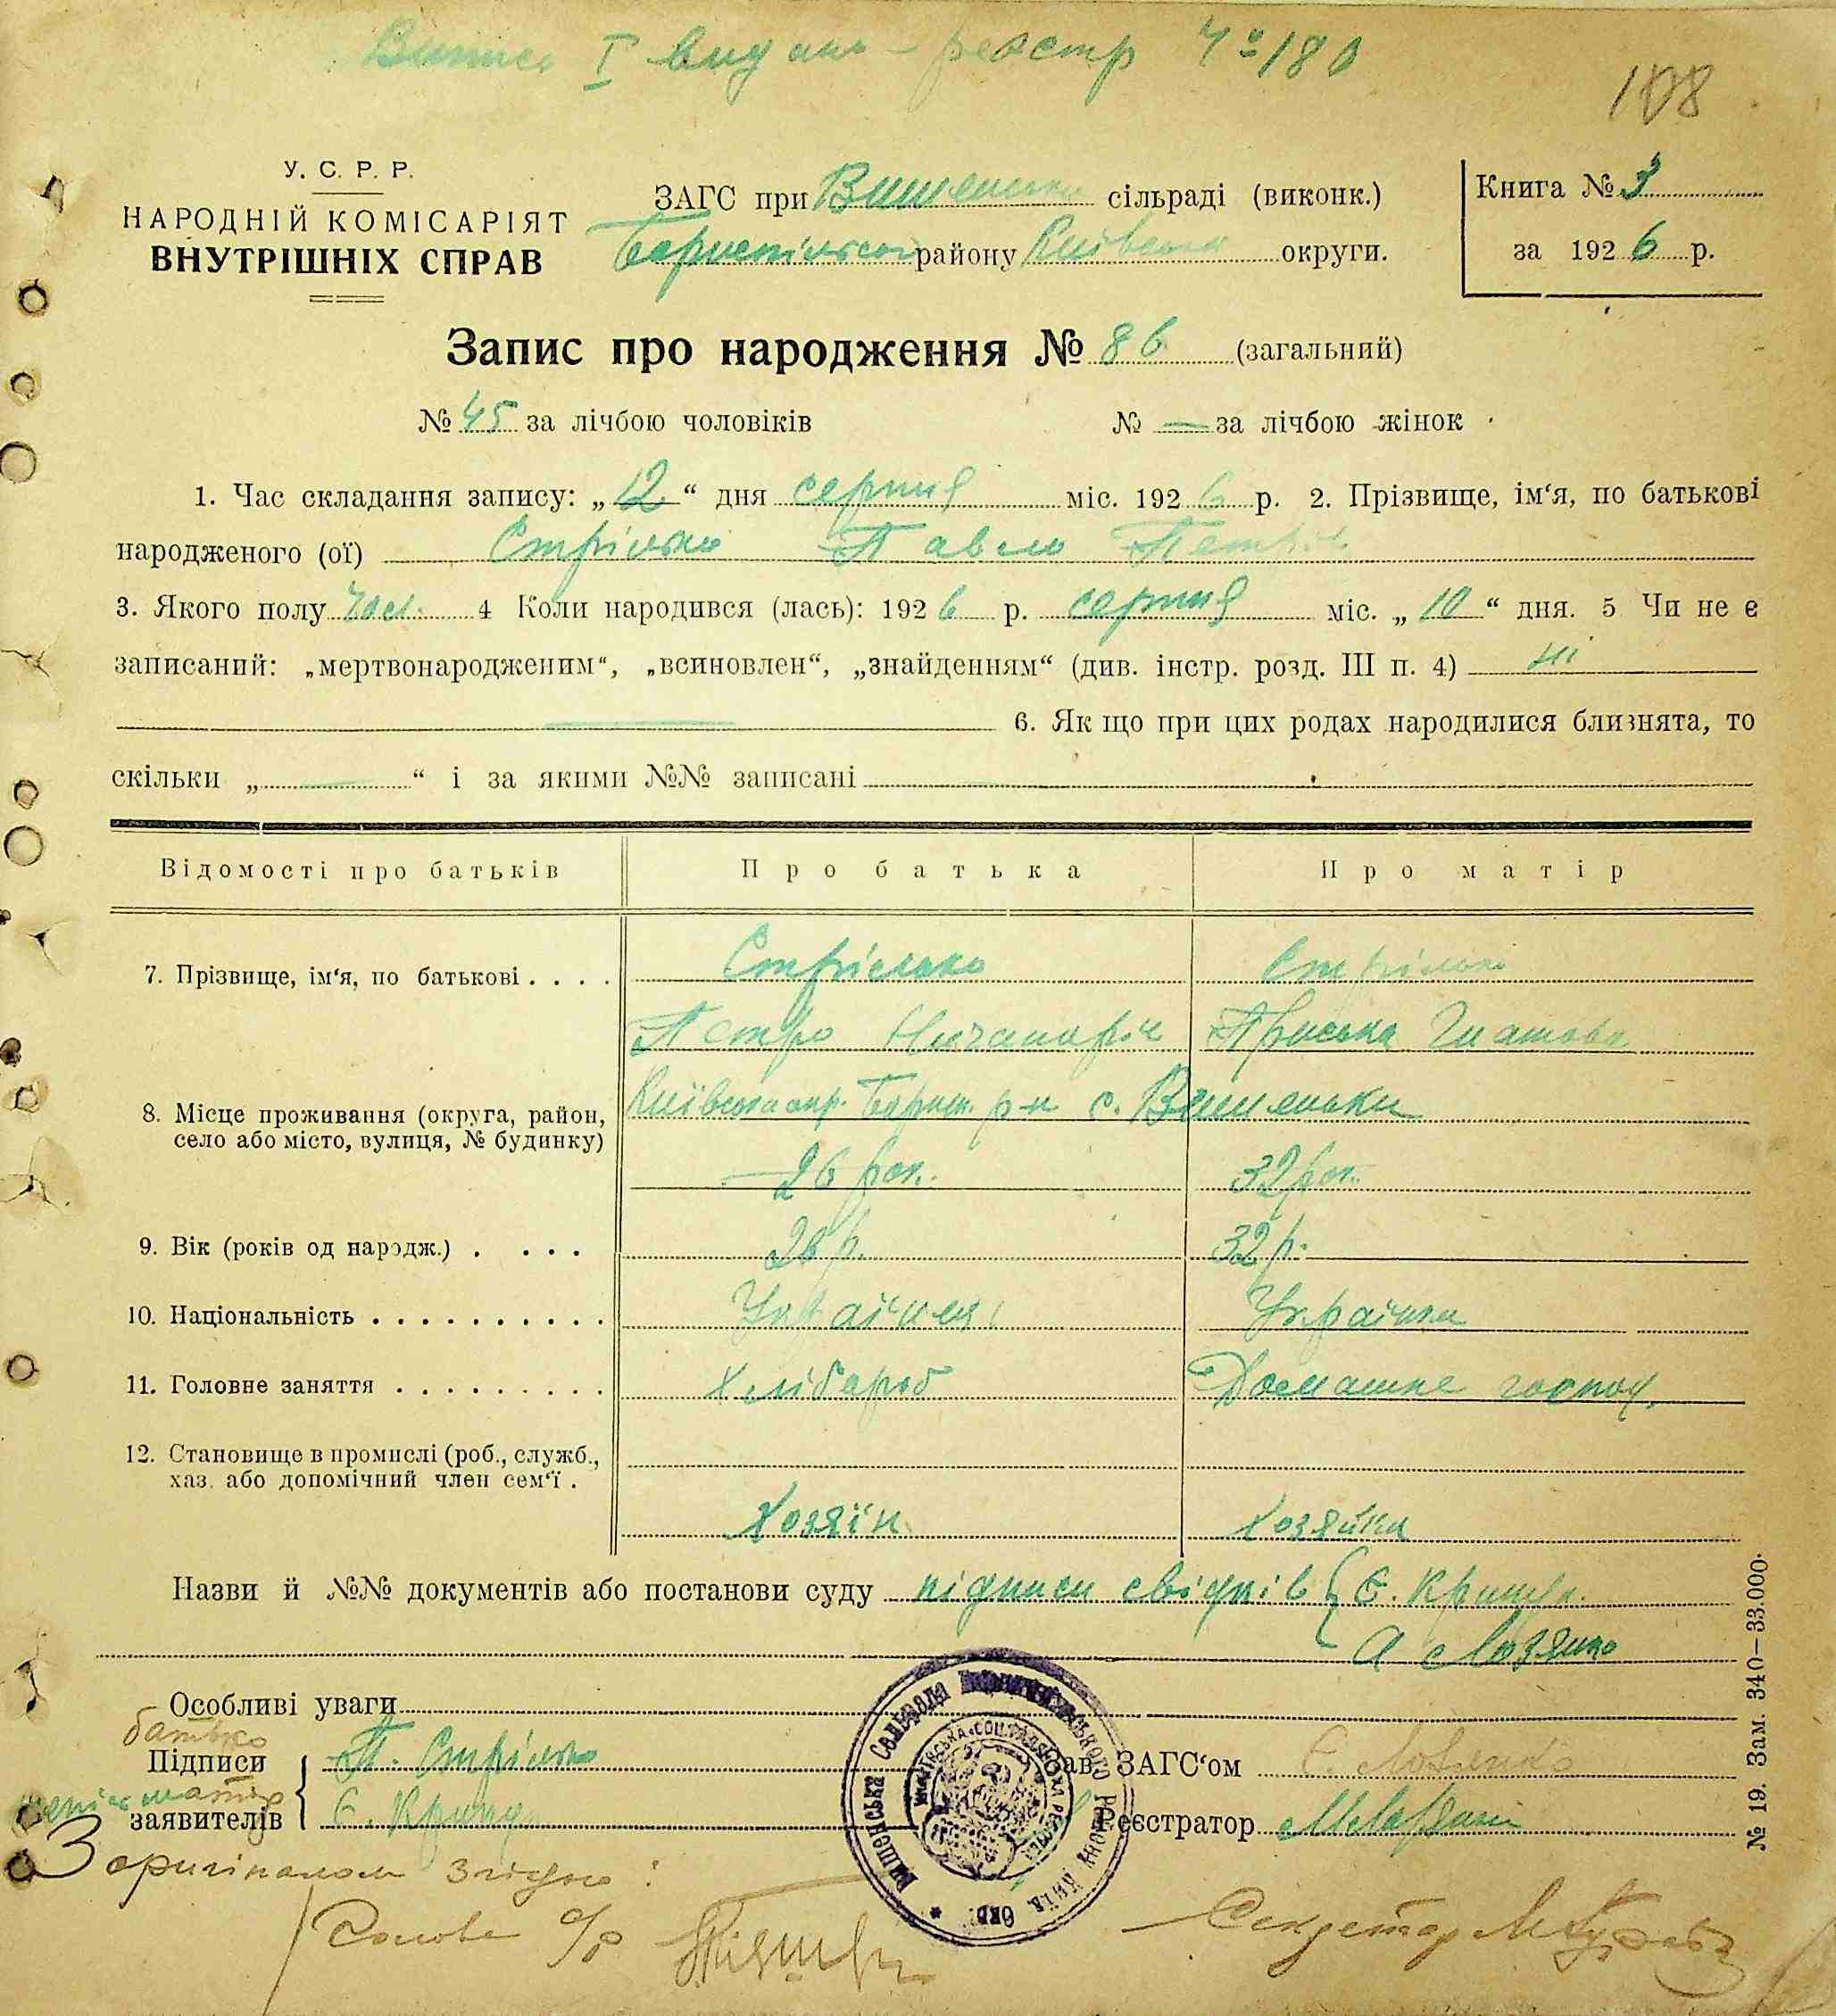 Витяг I видано – реєстр Ч º/180
108
У. С. Р. Р.
НАРОДНІЙ КОМІСАРІЯТ
ВНУТРІШНІХ СПРАВ
ЗАГС при Вишеньській сільраді (виконк.)
Бориспільської району Київської округи.
Книга № 3
за 1926 р.
Запис про народження № 86 (загальний)
№ 45 за лічбою чоловіків № — за лічбою жінок
1. Час складання запису: „12“ дня серпня міс. 1926 р. 2. Прізвище, ім‘я, по батькові
народженого (ої) Стрілько Павло Петрів
3. Якого полу чол. 4 Коли народився (лась): 1926 р. серпня міс. „10“ дня. 5 Чи не є
записаний: „мертвонародженим“, „всиновлен“, „знайденням“ (див. інстр. розд. III п. 4) ні
— 6. Як що при цих родах народилися близнята, то
скільки „—“ і за якими №№ записані
Відомості про батьків Про батька Про матір
7. Прізвище, ім‘я, по батькові . . . . Стрілько Стрілько
Петро Ничипорів Приська Гнатова
8. Місце проживання (округа, район,
село або місто, вулиця, № будинку)
Київська окр. Борисп. р-н с. Вишеньки
26 рок. 32 рок.
9. Вік (років од народж.) . . . . 26 р. 32 р.
10. Національність . . . . . . . . . . Українец Українка
11. Головне заняття . . . . . . . . . Хлібороб Домашнє господ.
12. Становище в промислі (роб., служб.,
хаз. або допомічний член сем‘ї .
Хозяїн Хозяйка
Назви й №№ документів або постанови суду підписи свідків { Є. Крищ
А Лозянко
Особливі уваги
батько
Підписи П. Стрілько Зав. ЗАГС‘ом
матір
заявителів Є. Крищ Реєстратор
№ 19. Зам. 340–33.000.
З оригіналом згідно:
Голова с/р Секретар